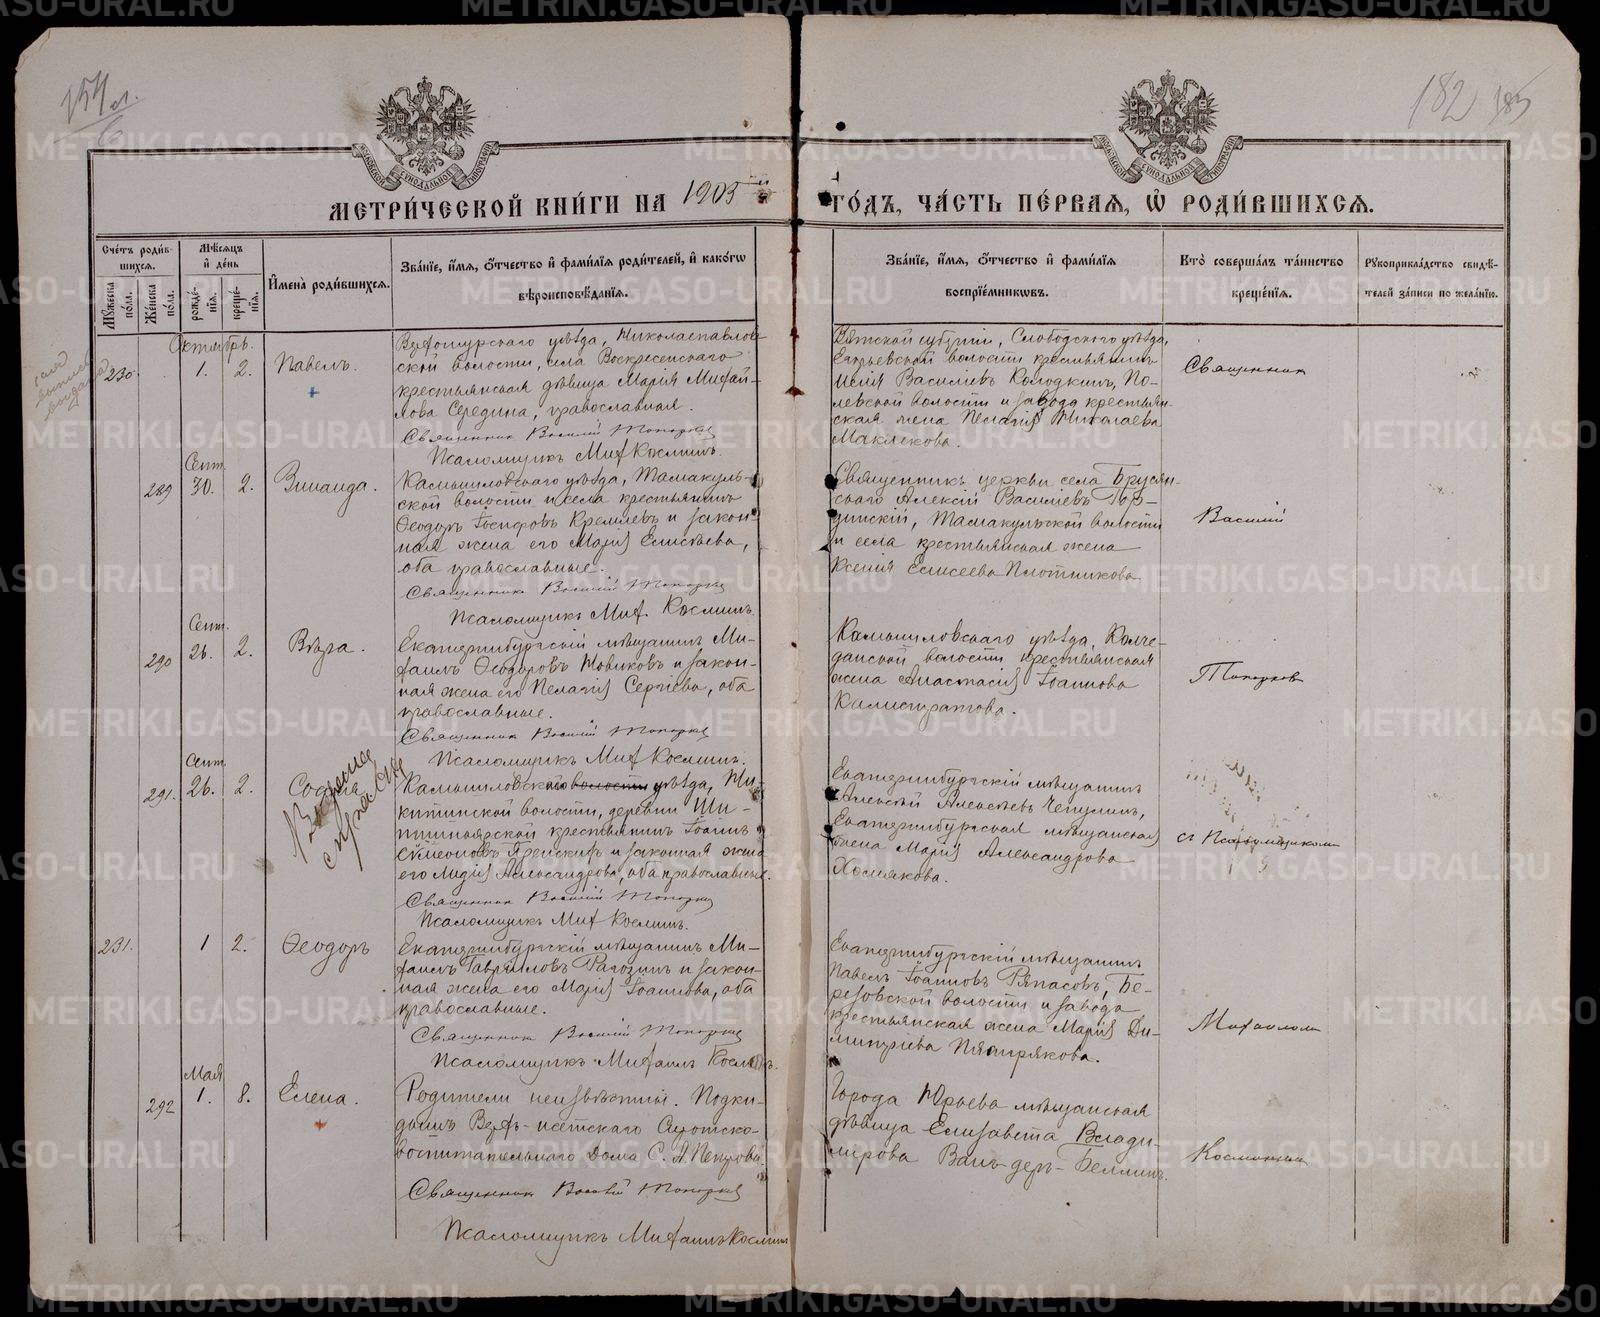 154 л.
182
МЕТРИ́ЧЕСКОЙ КНИ́ГИ НА 1905
ГО́ДЪ, ЧА́СТЬ ПЕ́РВАЯ, Ѡ РОДИ́ВШИХСЯ.
Сче́тъ роди́в-
шихся.
Му́жеска по́ла.
Же́нска по́ла.
Мѣ́сяцъ
и҆ де́нь
рожде́-
нія.
креще́-
нія.
И҆мена̀ роди́вшихся.
Зва́нїе, и҆́мя, ѻ҆́тчество и҆ фами́лїя роди́телей, и҆ како́гѡ
вѣроисповѣ́данїя.
Зва́нїе, и҆́мя, ѻ҆́тчество и҆ фами́лїя
воспрїе́мникѡвъ.
Кто̀ соверша́лъ та́инство
креще́нїя.
Рꙋкоприкла́дство свидѣ́-
телей за́писи по жела́нїю.
Октябрь.
230.
1.
2.
Павелъ.
Верхотурскаго уѣзда, Николаепавлов-
ской волости, села Воскресенскаго
крестьянская дѣвица Марія Михай-
лова Середина, православная.
Священник Василій Топорков
Псаломщикъ Мих Космин.
Вятской губерніи, Слободского уѣзда,
волости крестьянинъ
Илія Василіевъ Колодкинъ, По-
левской волости и завода крестьян-
ская жена Пелагія Николаева
Маклекова.
Священник
Сент.
289
30.
2.
Зинаида.
Камышловскаго уѣзда, Тамакуль-
ской волости и села крестьянинъ
Ѳеодоръ Іосифовъ Кремлевъ и закон-
ная жена его Марія Елисѣева,
оба православные.
Священник Василій Топорков
Псаломщикъ Мих. Космин.
Священникъ церкви села Брусян-
скаго Алексій Василіевъ Гор-
динскій, Тамакульской волости
и села крестьянская жена
Ксенія Елисеева Плотникова
Василій
Сент.
290
26.
2.
Вѣра.
Екатеринбургскій мѣщанинъ Ми-
хаилъ Ѳеодоровъ Новиковъ и закон-
ная жена его Пелагія Сергіева, оба
православные.
Священник Василій Топорков
Псаломщикъ Мих Космин.
Камышловскаго уѣзда, Колче-
данской волости крестьянская
жена Анастасія Іоаннова
Калистратова.
Топорков
Сент.
291.
26.
2.
Софія
Камышловскаго волости уѣзда, Ни-
китинской волости, деревни
крестьянинъ Іоаннъ
Сѵмеоновъ и законная жена
его Лидія Александрова, оба православные.
Священник Василій Топорков
Псаломщикъ Мих Космин.
Екатеринбургскій мѣщанинъ
Алексій Алексѣевъ Чепулин,
Екатеринбургская мѣщанская
жена Марія Александрова
Хомякова.
съ Псаломщиком
231.
1
2.
Ѳеодоръ
Екатеринбургскій мѣщанинъ Ми-
хаилъ Гавріиловъ Рагозинъ и закон-
ная жена его Марія Іоаннова, оба
православные.
Священник Василій Топорков
Псаломщикъ Михаилъ Космин.
Екатеринбургскій мѣщанинъ
Павелъ Іоанновъ Ряпасовъ, Бе-
резовской волости и завода
крестьянская жена Марія Ди-
митріева Пятирякова.
Михаилом
Мая
292
1.
8.
Елена.
Родители неизвѣстны. Подки-
дышъ Верхъ-исетскаго Сиротско-
воспитательнаго Дома С. А. Петрова.
Священник Василій Топорков
Псаломщикъ Михаилъ Космин
Города Юрьева мѣщанская
дѣвица Елизавета Влади-
мірова Ванъ-деръ-Беллинъ.
Косминым